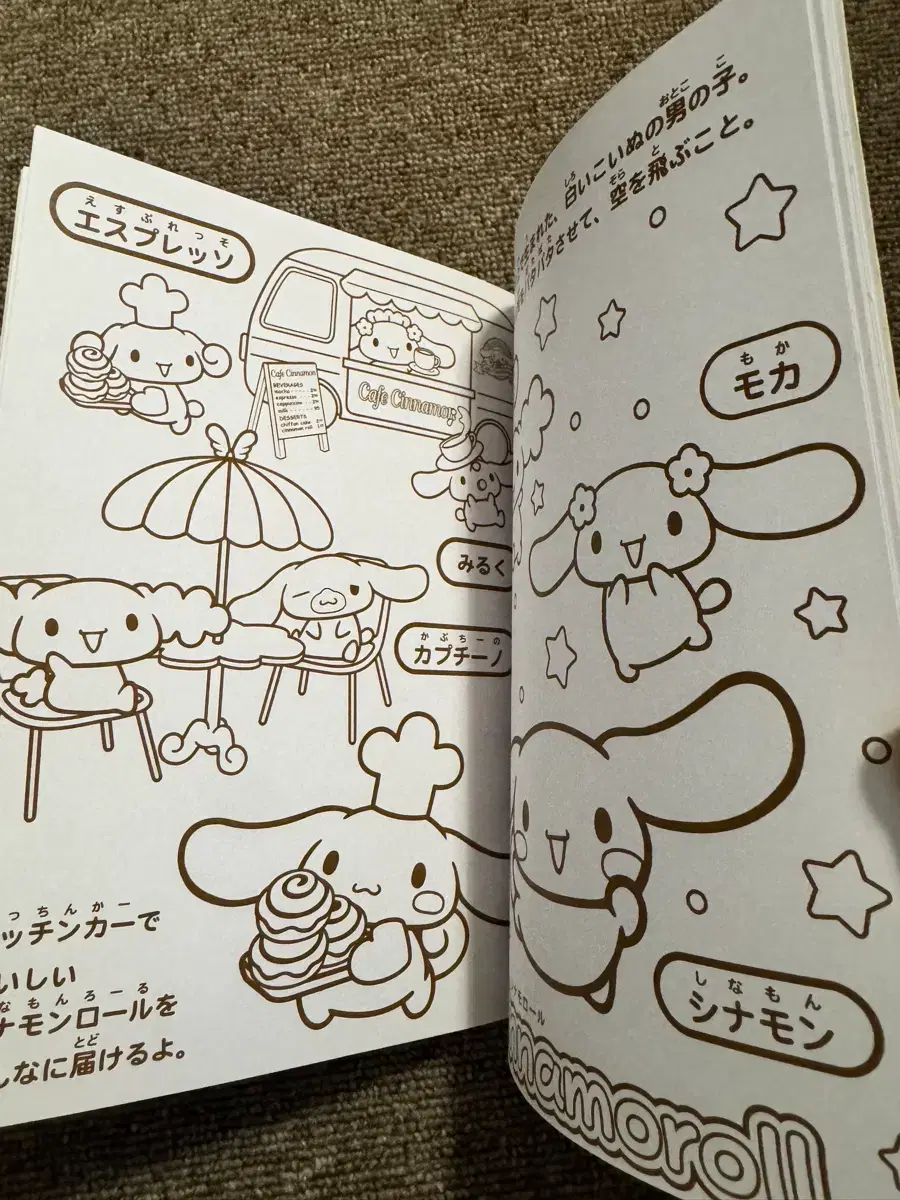 えすぷれっそ
エスプレッソ
Cafe Cinnamon
BEVERAGES
mocha
espresso
cappuccino
milk
DESSERTS
chiffon cake
cinnamon roll
Cafe Cinnamon
みるく
かぷちーの
カプチーノ
っちんかー
ッチンカーで
いしい
なもんろーる
ナモンロールを
とど
んなに届けるよ。
おとこ こ
しろ
白いこいぬの男の子。
そら と
パタパタさせて、空を飛ぶこと。
もか
モカ
しなもん
シナモン
ナモロール
namoroll